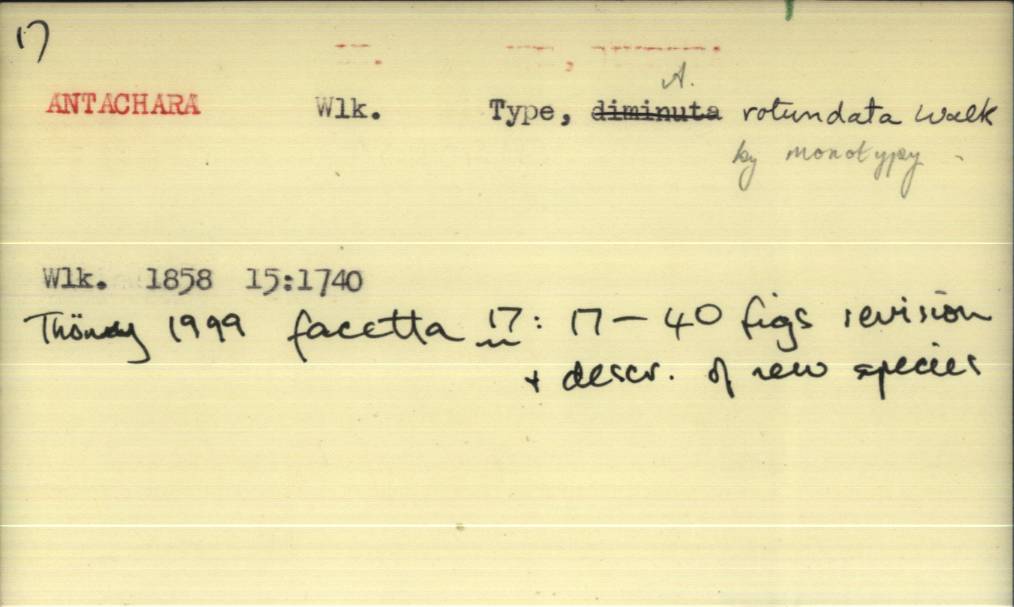 17
A.
ANTACHARA Wlk. Type, diminuta rotundata Walk
by monotypy
Wlk. 1858 15:1740
Thöny 1999 facetta 17: 17-40 figs revision
+ descr. of new species